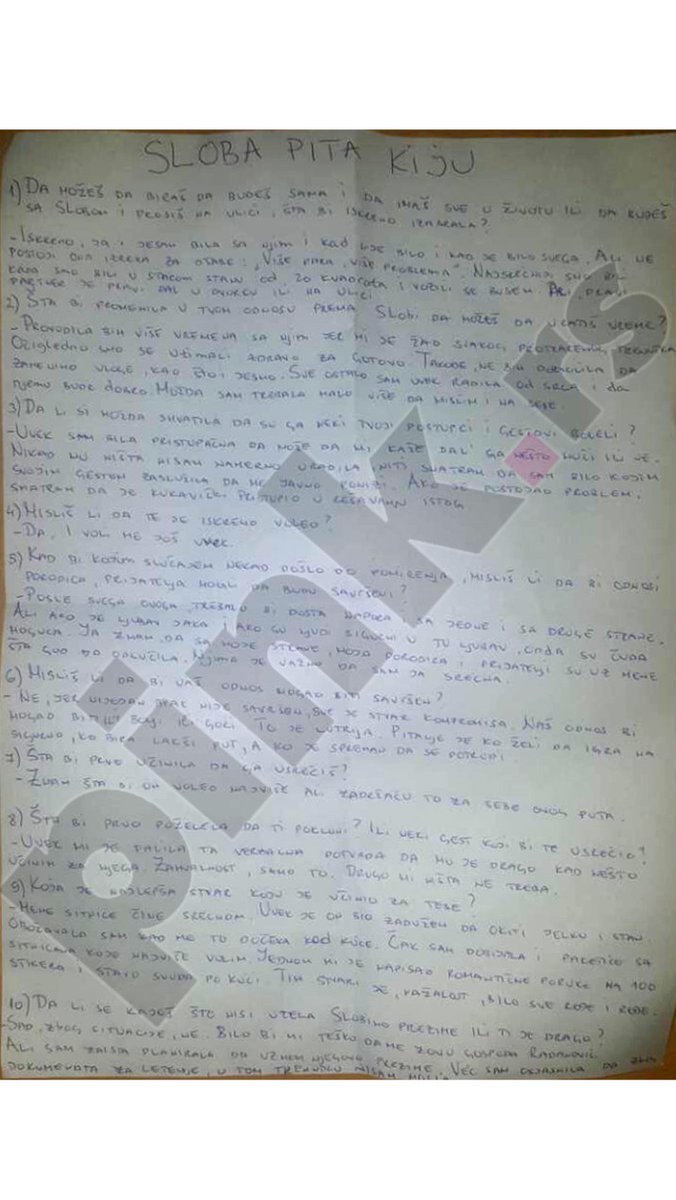 SLOBA PITA KIJU
1) DA MOŽEŠ DA BIRAŠ DA BUDEŠ SAMA I DA IMAŠ SVE U ŽIVOTU ILI DA BUDEŠ
SA SLOBOM I PROSIŠ NA ULICI, ŠTA BI ISKRENO IZABRALA?
- ISKRENO, JA I JESAM BILA SA NJIM I KAD NIJE BILO I KAD JE BILO SVEGA. ALI NE
POSTOJI ONA IZREKA ZA : "VIŠE PARA, VIŠE PROBLEMA". NAJSREĆNIJI SMO BILI
KADA SMO BILI U STAROM STANU OD 20 KVADRATA I VOZILI SE BUSEM. PRAVI
PARTNER JE PRAVI DAL U DVORCU ILI NA ULICI
2) ŠTA BI PROMENILA U TVOM ODNOSU PREMA SLOBI DA MOŽEŠ DA VRATIŠ VREME?
- PROVODILA BIH VIŠE VREMENA SA NJIM JER MI JE ŽAO SVAKOG TRENUTKA
OČIGLEDNO SMO SE UZIMALI ZDRAVO ZA GOTOVO. TAKOĐE, NE BIH DOZVOLILA DA
ZAMENIMO ULOGE, KAO ŠTO I JESMO. SVE OSTALO SAM UVEK RADILA OD SRCA I DA
NJEMU BUDE DOBRO. MOŽDA SAM TREBALA MALO VIŠE DA MISLIM I NA SEBE.
3) DA LI SI MOŽDA SHVATILA DA SU GA NEKI TVOJI POSTUPCI I GESTOVI BOLELI?
- UVEK SAM BILA PRISTUPAČNA DA MOŽE DA MI KAŽE DAL' GA NEŠTO MUČI ILI NE.
NIKAD MU NIŠTA NISAM NAMERNO URADILA NITI SMATRAM DA SAM BILO KOJIM
SVOJIM GESTOM ZASLUŽILA DA ME JAVNO PONIZI. AKO JE POSTOJAO PROBLEM,
SMATRAM DA JE KUKAVIČKI PRISTUPIO U REŠAVANJU ISTOG
4) MISLIŠ LI DA TE JE ISKRENO VOLEO?
- DA, I VOLI ME JOŠ UVEK.
5) KAD BI KOJIM SLUČAJEM NEKAD DOŠLO DO POMIRENJA, MISLIŠ LI DA BI ODNOSI
PORODICA, PRIJATELJA MOGLI DA BUDU SAVRŠENI?
- POSLE SVEGA OVOGA, TREBALO BI DOSTA NAPORA, SA JEDNE I SA DRUGE STRANE.
ALI AKO JE LJUBAV JAKA I AKO SU LJUDI SIGURNI U TU LJUBAV, ONDA SU ČUDA
MOGUĆA. JA ZNAM DA SA MOJE STRANE, MOJA PORODICA I PRIJATELJI SU UZ MENE
ŠTA GOD DA ODLUČILA. NJIMA JE VAŽNO DA SAM JA SREĆNA.
6) MISLIŠ LI DA BI VAŠ ODNOS MOGAO BITI SAVRŠEN?
- NE, JER NIJEDAN BRAK NIJE SAVRŠEN, SVE JE STVAR KOMPROMISA. NAŠ ODNOS BI
MOGAO BITI ILI BOLJI ILI GORI. TO JE LUTRIJA. PITANJE JE KO ŽELI DA IGRA NA
SIGURNO, KO BIRA LAKŠI PUT, A KO JE SPREMAN DA SE POTRUDI.
7) ŠTA BI PRVO UČINILA DA GA USREĆIŠ?
- ZNAM ŠTA BI ON VOLEO NAJVIŠE ALI ZADRŽAĆU TO ZA SEBE OVOG PUTA.
8) ŠTA BI PRVO POŽELELA DA TI POKLONI? ILI NEKI GEST KOJI BI TE USREĆIO?
- UVEK MI JE FALILA TA VERBALNA POTVRDA DA MU JE DRAGO KAD NEŠTO
UČINIM ZA NJEGA. ZAHVALNOST, SAMO TO. DRUGO MI NIŠTA NE TREBA.
9) KOJA JE NAJLEPŠA STVAR KOJU JE UČINIO ZA TEBE?
- MENE SITNICE ČINE SREĆNOM. UVEK JE ON BIO ZADUŽEN DA OKITI JELKU I STAN.
OBOŽAVALA SAM KAD ME TO DOČEKA KOD KUĆE. ČAK SAM DOBIJALA I PAKETIĆE SA
SITNICAMA KOJE NAJVIŠE VOLIM. JEDNOM MI JE NAPISAO ROMANTIČNE PORUKE NA 100
STIKERA I STAVIO SVUDA PO KUĆI. TIH STVARI JE, NAŽALOST, BILO SVE REĐE I REĐE.
10) DA LI SE KAJEŠ ŠTO NISI UZELA SLOBINO PREZIME ILI TI JE DRAGO?
- SAD, ZBOG SITUACIJE, NE. BILO BI MI TEŠKO DA ME ZOVU GOSPOĐA RADANOVIĆ.
ALI SAM ZAISTA PLANIRALA DA UZMEM NJEGOVO PREZIME. VEĆ SAM OBJASNILA DA ZBOG
DOKUMENATA ZA LETENJE, U TOM TRENUTKU NISAM
pink.rs